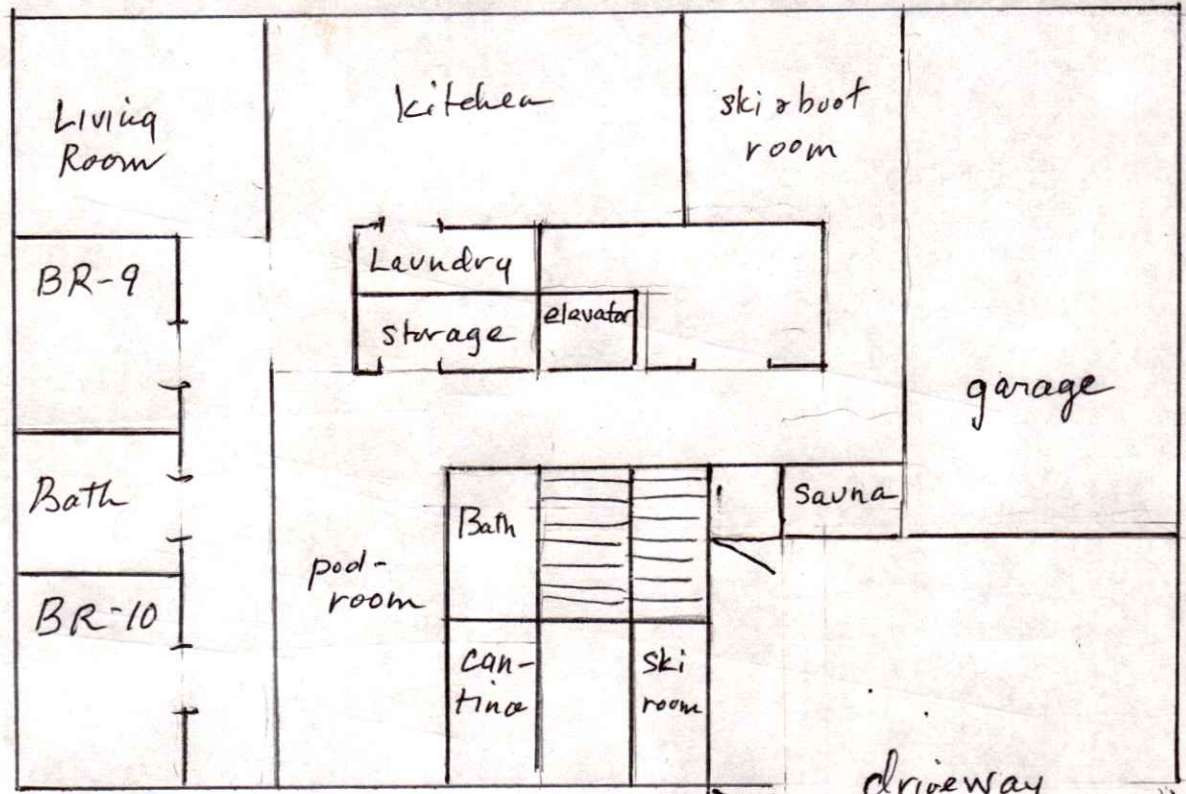 Living
Room
kitchen
ski & boot
room
BR-9
Laundry
storage
elavator
garage
Bath
Bath
sauna
pod-
room
BR-10
can-
tina
ski
room
driveway